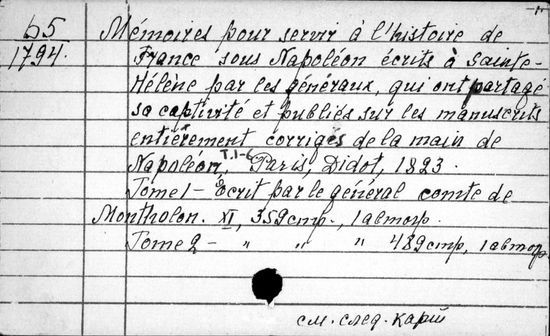 65
1794.
Mémoires pour servir à l'histoire de
France sous Napoléon écrits à Sainte-
Hélène par les généraux, qui ont partagé
sa captivité et publiés sur les manuscrits
entièrement corrigés de la main de
Napoléon, T.1-6 Paris, Didot, 1823.
Tome 1 - Écrit par le général comte de
Montholon. XI, 359 стр., 1 автогр.
Tome 2 - " " " 489 стр, 1 автогр.
см. след. карт